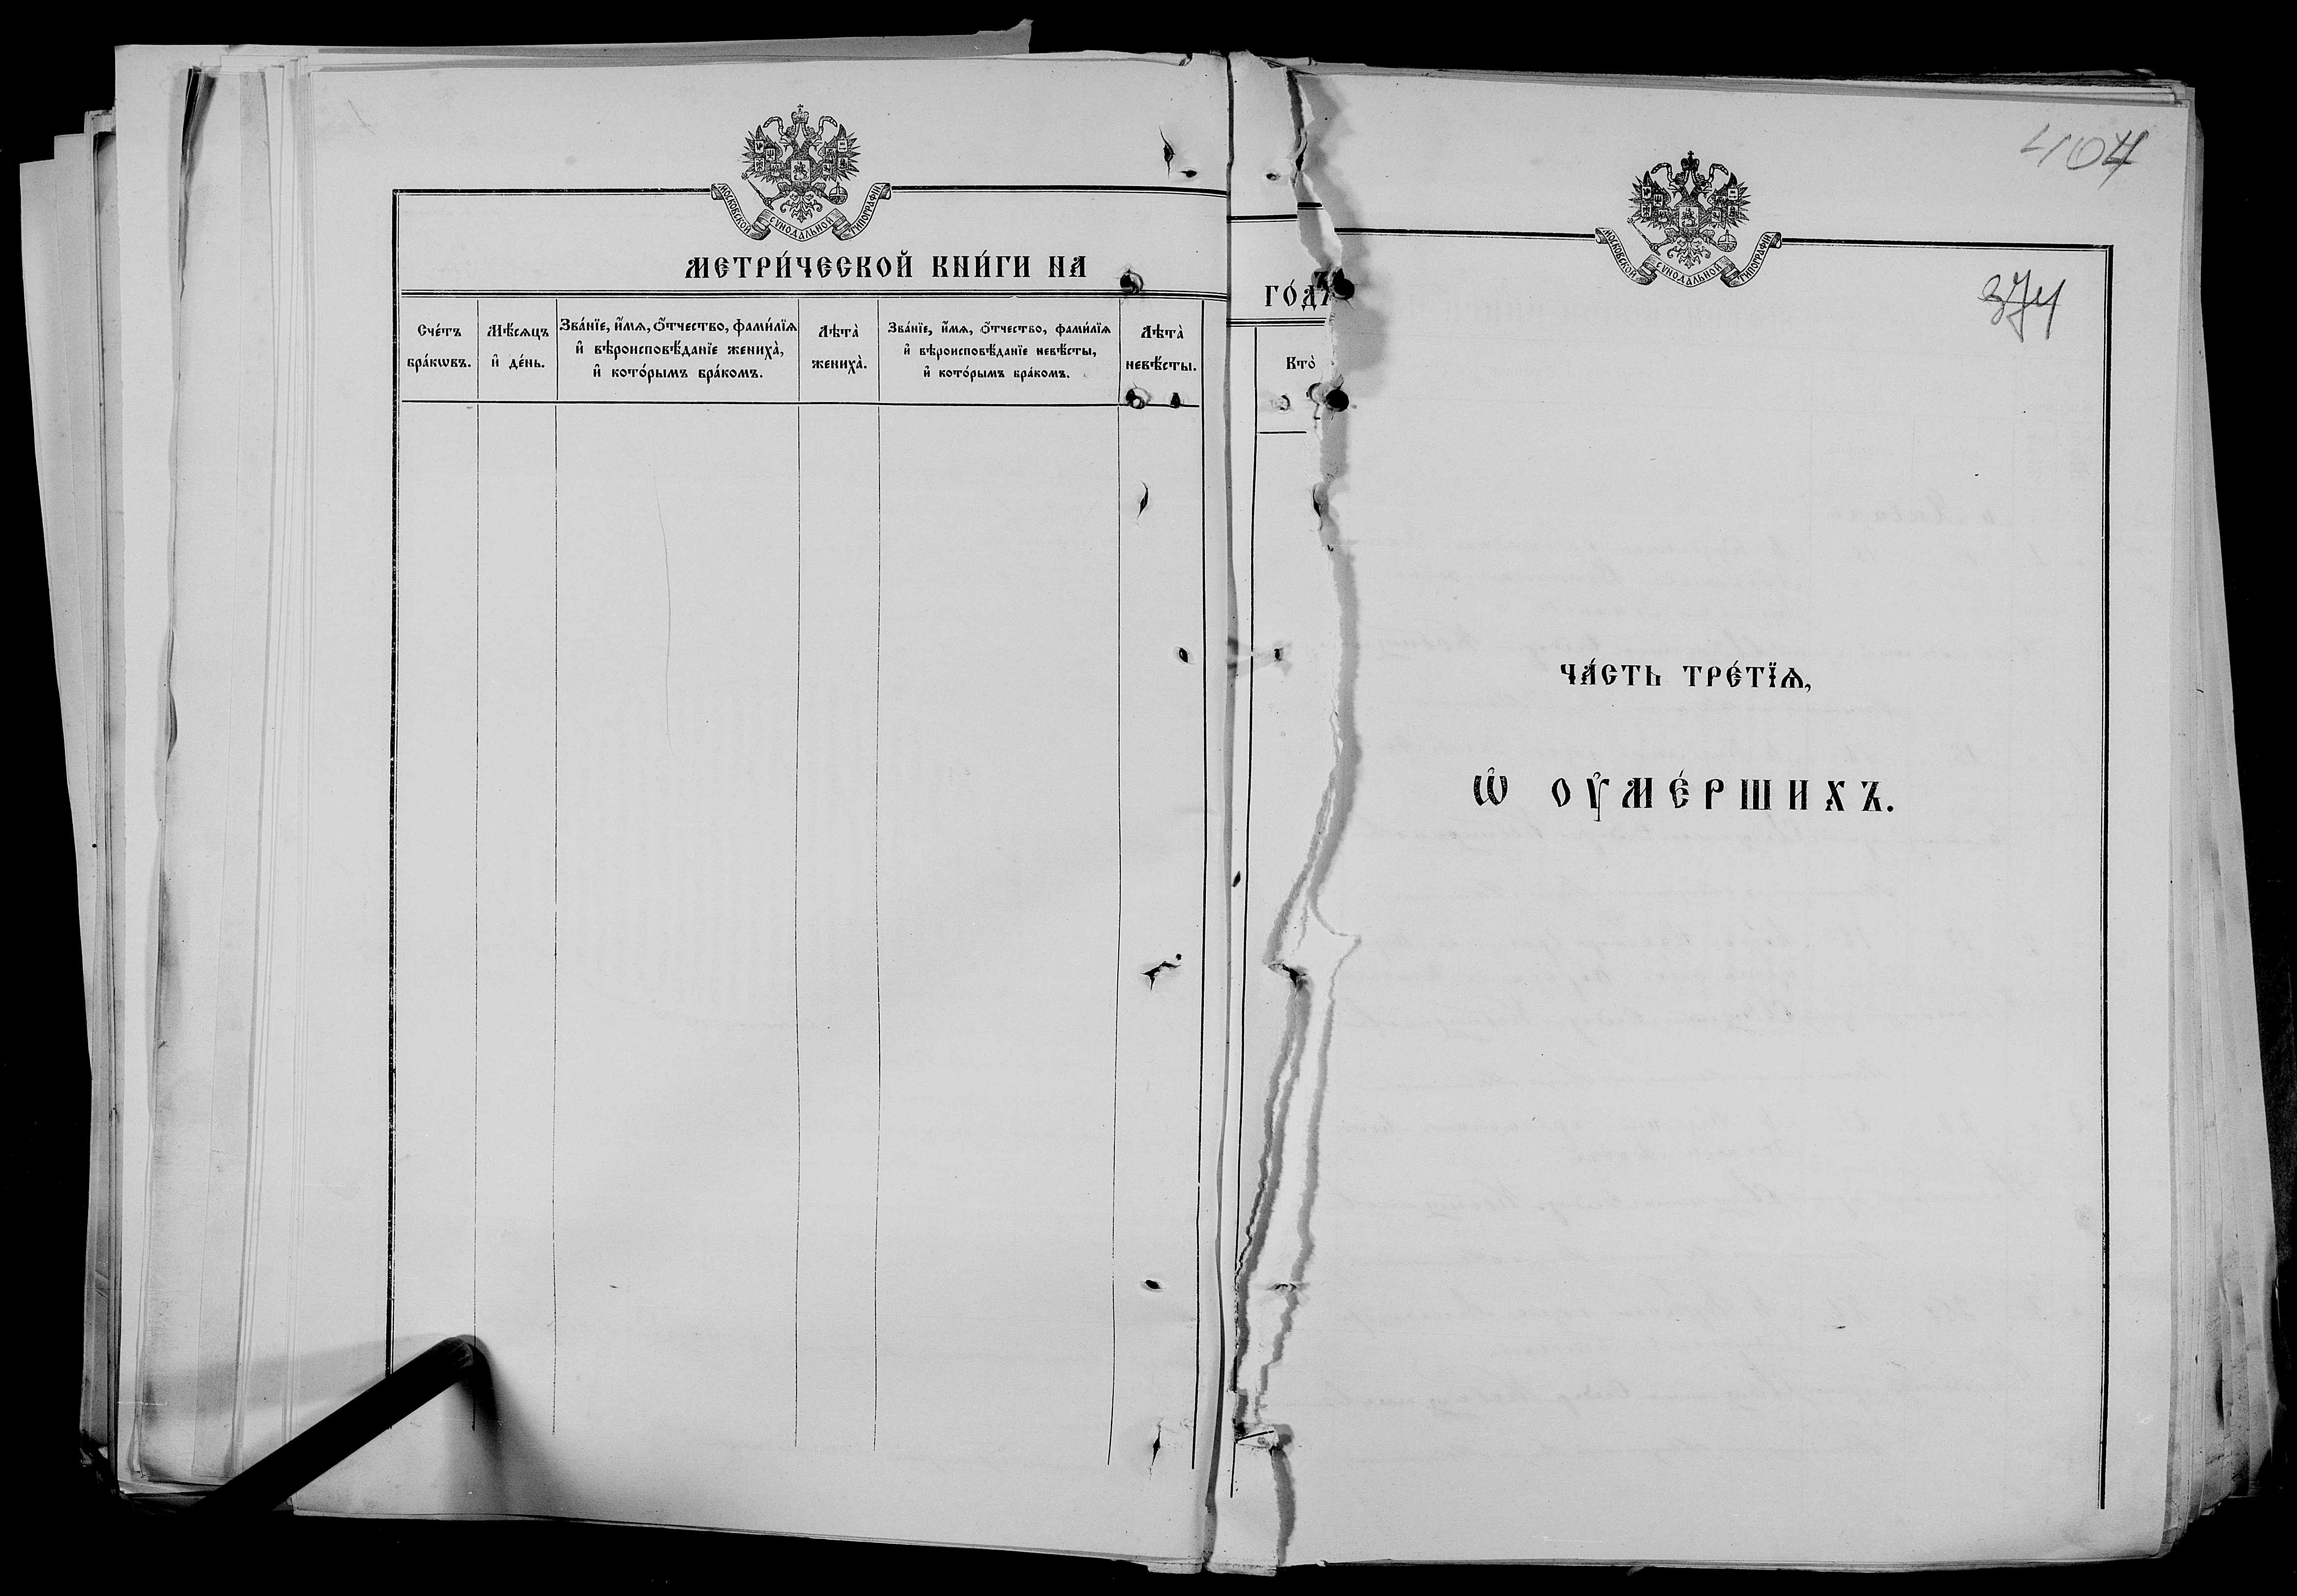 МОСКОВСКОЙ СУНОДАЛЬНОЙ ТИПОГРАФІИ
МЕТРИ́ЧЕСКОЙ КНИ́ГИ НА
Сче́тъ
бра́кѡвъ.
Мѣ́сѧцъ
и҆ де́нь.
Зва́нїе, и҆́мѧ, ѻ҆́тчество, фами́лїѧ
и҆ вѣроисповѣ́данїе жениха̀,
и҆ кото́рымъ бра́комъ.
Лѣта̀
жениха̀.
Зва́нїе, и҆́мѧ, ѻ҆́тчество, фами́лїѧ
и҆ вѣроисповѣ́данїе невѣ́сты,
и҆ кото́рымъ бра́комъ.
Лѣта̀
невѣ́сты.
ГО́ДЪ
Кто̀
404
МОСКОВСКОЙ СУНОДАЛЬНОЙ ТИПОГРАФІИ
374
ЧА́СТЬ ТРЕ́ТЇѦ,
Ѡ҆ ОУ҆МЕ́РШИХЪ.